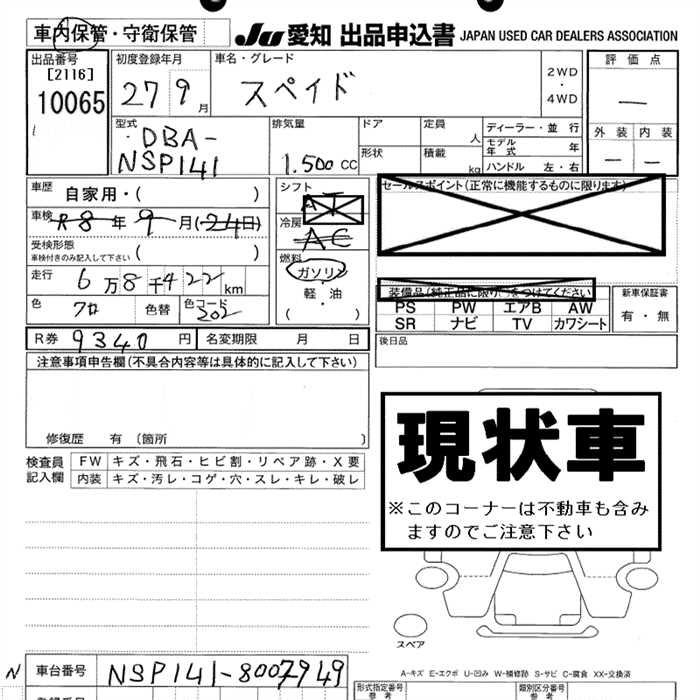 車内保管・守衛保管
JU 愛知 出品申込書 JAPAN USED CAR DEALERS ASSOCIATION
出品番号
[2116]
10065
初度登録年月
27 9月
車名・グレード
スペイド
2WD
・
4WD
評価点
—
外装 内装
— —
型式
DBA-
NSP141
排気量
1.500 CC
ドア
形状
定員
人
積載
kg
ディーラー・並行
モデル年式 年式
ハンドル 左・右
車歴
自家用・( )
車検
R8年 9月(24日)
受検形態
車検付きのみ記入して下さい ( )
走行
6万8千422km
色
クロ
色替
色コード
202
シフト
AT
冷房
AC
燃料
ガソリン
・
軽・油
( )
セールスポイント(正常に機能するものに限ります)
装備品(純正品に限り○をつけてください
PS PW エアB AW
SR ナビ TV カワシート
新車保証書
有・無
R券 9340円
名変期限 月 日
後日品
注意事項申告欄(不具合内容等は具体的に記入して下さい)
修復歴 有 〔箇所 〕
検査員
記入欄
FW キズ・飛石・ヒビ割・リペア跡・X要
内装 キズ・汚レ・コゲ・穴・スレ・キレ・破レ
現状車
※このコーナーは不動車も含み
ますのでご注意下さい
スペア
A-キズ E-エクボ U-凹み W-補修跡 S-サビ C-腐食 XX-交換済
N
車台番号 NSP141-8007949
形式指定番号
類別区分番号
参考
参考